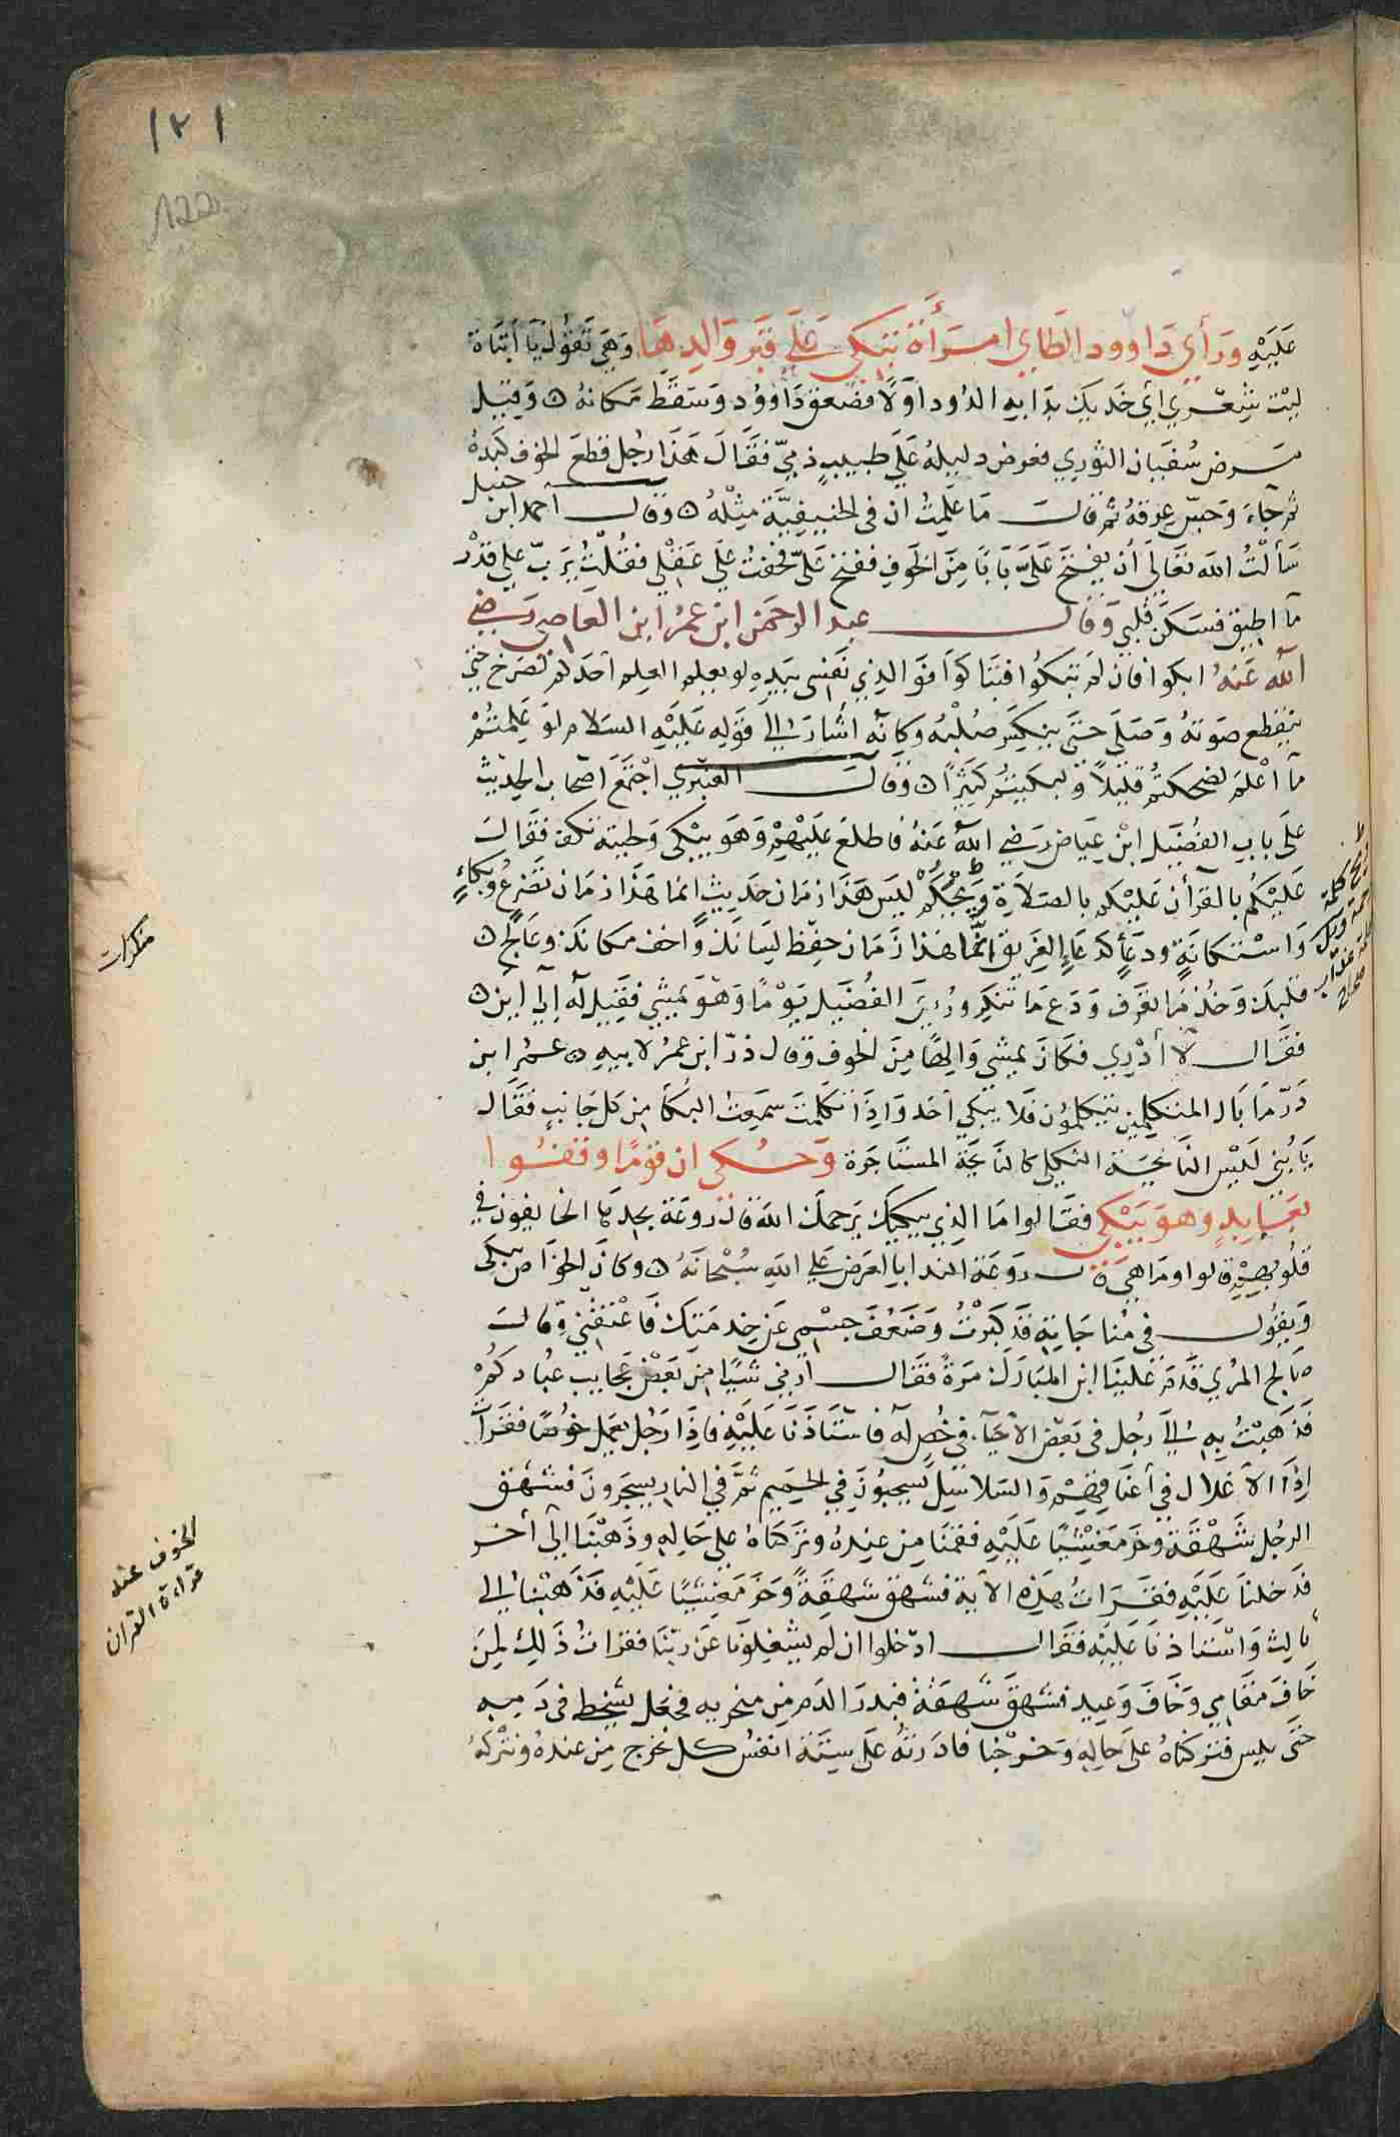 ١٢١
122
عَلَيْهِ ورَأي دَاوود الطَّايِ امرَأَة تَبكي عَلَي قَبر وَالِدِهَا وَهِيَ تَقُولُ يَا أَبَتَاهْ
ليْت شِعْري اي خَديك بَدَا بِهِ الدُود اوَلاً فصَعق دَاوُود وَسَقط مَكانهُ ٥ وَقيل
مَرض سُفيَان الثوري فعرض دليلهُ عَلَي طبيبٍ ذميّ فقَالَ هَذَا رجُل قطعَ الخوف كبدهُ
ثم جَاءَ وَحبسّ عِرقهُ ثم قالــ مَا عَلِمتُ ان في الحنيفيَّة مثلهُ ٥ وَقالــ أحمد ابن حنبل
سَألتُ الله تعَالي أن يفتحَ عَلَيَّ بَابَا مِنَ الخوفِ ففتح عَليَّ فخفتُ عَلي عَقلي فقُلْتُ يَرَبّ عَلي قدْر
مَا اطيق فسَكن قلبي وَقالــ عبد الرحمَن ابن عمرُ ابن العَاصِ رَضي
الله عَنهُ ابكوا فان لم تبكوُا فتبَاكوا فوَالذِي نَفسي بيَدِهِ لو يعلم العِلم أحَدكم لصَرخ حَتي
ينقطع صَوتهُ وَصَلَي حَتَي ينكسِر صُلبهُ وَكانَّه أشارَ الَي قوَلِهِ عَليَهِ السَلام لوَ عَلِمتُمْ
مَا أعْلمَ لضَحكتُم قليلاً وَ لبكيتُم كَثيرًا ٥ وَقالــ العَنبري اجْتمَعَ أصْحَاب الحَديث
علَي بابِ الفُضَيل ابْن عِيَاض رَضي اللهُ عَنهُ فاطلعَ عَليْهِمْ وَهوَ يبْكي وَلحيته تكف فقَالَ
عَليْكُم بالقرأن عَليْكم بالصَلاَةِ وَيْحَكُمْ ليسَ هَذَا زمَان حَدِيثٍ انمَا هَذَا زمَان تضَرعُ وبكاءٍ
وَاسْتكانةٍ ودعَأٍ كدعَاءِ الغَريق انَّمَا هَذا زَمَان حِفظ لسَانكَ وَاخف مكانَكَ وعَالجْ ٥
قلبَك وَخُذ مَا تعَرف وَدَع مَا تنكِر ورُئيَ الفُضَيل يَوْمًا وَهوَ يمشِي فقيل لهُ إلَي اينَ ٥
فقَالــ لا أدْري فكانَ يمشي وَالِهًا مِنَ الخوف وَقال ذرّ ابن عمرُ لابيهِ ٥ عَمْر ابن
ذَرّ مَا بَال المتكلِمِين يتكلمُون فلا يَبكي أحَد وَاذَا تكلمتَ سَمِعتُ البكاَ مِن كل جَانبٍ فقَال
يَا بُني ليْس النَايحَة الثكلي كالنَايحَة المسْتاجَرة وَحُكي ان قومًا وقفُوا
بعَابِدٍ وهوَ يَبْكي فقَالوا مَا الذي يبكيكَ يَرحمكَ الله قال رَوعَة يجدهَا الخايفون في
قلُوبهِمْ قالوا ومَا هِيَ قالــ رَوعَة الندا بالعَرض عَلي اللهِ سُبْحانهُ ٥ وكانَ الخوَّاص يبكي
وَيقُولــ في مُناجَاتِهِ قدَ كَبرْتُ وضَعُفَ جسْمي عَن خِدمَتِكَ فَاعْتقني وَقالَ
صَالح المُري قدمَ عَلينَا ابن المبَارَك مَرةً فقَالــ أرِني شيًا مِن بَعْض عجَايب عُبادكُم
فَذهبْتُ بِهِ إلَي رَجُل في بعَض الأحيَآءِ في خُصٍ لهُ فاستَأذَنا عَليْهِ فَاِذَا رَجُل يعمل خوُصًا فقَرَأت
إذَا الاَغلاَل في أعنَاقهِمْ وَالسَلاسِل يسْحبُونَ في الحَميم ثمَّ في النارِ يسجَرونَ فشهَق
الرجُل شَهْقة وخَر مَغشيًا عَليْهِ فقمنَا مِن عِندِهُ وترَكنَاهُ علي حَالِهِ وذهَبْنَا إلَي أخر
فدَخلنَا عَليْهِ فقَرَات هَذِه الأية فشهَق شهقةً وَخر مَغشيًا عَليْهِ فذَهبْنا إلَي
ثالث وَاسْتاذنَا عَليْهِ فقَالــ ادْخلوا ان لم يشغلونَا عَن رَبّنَا فقرَات ذَلِك لِمَن
خَافَ مَقامِي وَخَافَ وَعِيدِ فشهَقَ شَهقَة فبدرَ الدَم مِن منخريهِ فجَعل يتشخط في دَمِهِ
حَتَي يبس فترَكناهُ علَي حَالِهِ وَخرجْنا فادَرتهُ علَي ستةَ انفسُ كل نخرج مِن عندهُ ونتْركهُ
منكرات
الخوف عند
قراءة القران